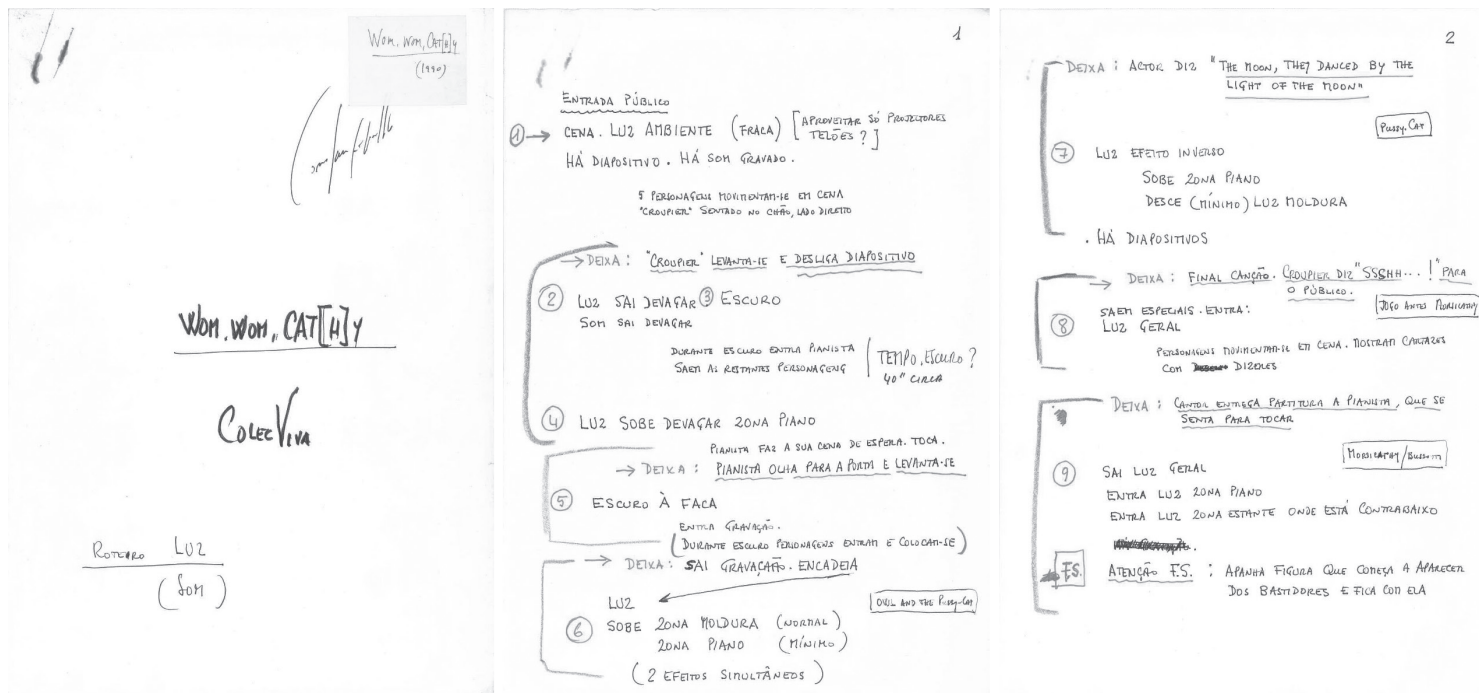 Wom, Wom, Cat[h]y
(1990)
Wom, Wom, CAT[H]y
ColecViva
Roteiro Luz
(Som)
1
ENTRADA PÚBLICO
1 → CENA. LUZ AMBIENTE (FRACA) [APROVEITAR SÓ PROJECTORES
TELÕES?]
HÁ DIAPOSITIVO. HÁ SOM GRAVADO.
5 PERSONAGENS MOVIMENTAM-SE EM CENA
"CROUPIER" SENTADO NO CHÃO, LADO DIREITO
→ DEIXA: "CROUPIER" LEVANTA-SE E DESLIGA DIAPOSITIVO
2 LUZ SAI DEVAGAR 3 ESCURO
SOM SAI DEVAGAR
DURANTE ESCURO ENTRA PIANISTA
SAEM AS RESTANTES PERSONAGENS
TEMPO, ESCURO?
40" CIRCA
4 LUZ SOBE DEVAGAR ZONA PIANO
PIANISTA FAZ A SUA CENA DE ESPERA. TOCA.
→ DEIXA: PIANISTA OLHA PARA A PORTA E LEVANTA-SE
5 ESCURO À FACA
ENTRA GRAVAÇÃO.
(DURANTE ESCURO PERSONAGENS ENTRAM E COLOCAM-SE)
→ DEIXA: SAI GRAVAÇÃO. ENCADEIA
LUZ
OWL AND THE PUSSY-CAT
6 SOBE ZONA MOLDURA (NORMAL)
ZONA PIANO (MÍNIMO)
(2 EFEITOS SIMULTÂNEOS)
2
DEIXA: ACTOR DIZ "THE MOON, THEY DANCED BY THE
LIGHT OF THE MOON"
PUSSY-CAT
7 LUZ EFEITO INVERSO
SOBE ZONA PIANO
DESCE (MÍNIMO) LUZ MOLDURA
. HÁ DIAPOSITIVOS
→ DEIXA: FINAL CANÇÃO. CROUPIER DIZ "SSSHH...!" PARA
O PÚBLICO.
JOGO ANTES MORSICATHY
SAEM ESPECIAIS. ENTRA:
8 LUZ GERAL
PERSONAGENS MOVIMENTAM-SE EM CENA. MOSTRAM CARTAZES
COM DIZERES
DEIXA: CANTOR ENTREGA PARTITURA A PIANISTA, QUE SE
SENTA PARA TOCAR
MORSICATHY/BUSSOTTI
9 SAI LUZ GERAL
ENTRA LUZ ZONA PIANO
ENTRA LUZ ZONA ESTANTE ONDE ESTÁ CONTRABAIXO
F.S. ATENÇÃO F.S.: APANHA FIGURA QUE COMEÇA A APARECER
DOS BASTIDORES E FICA COM ELA